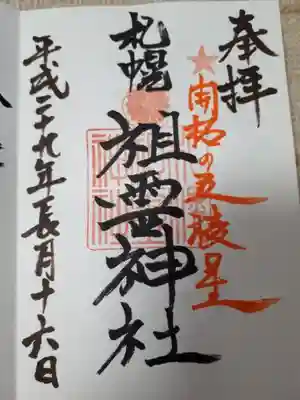 奉拝
★開拓の五稜星
札幌
祖霊神社
平成二十九年長月十六日